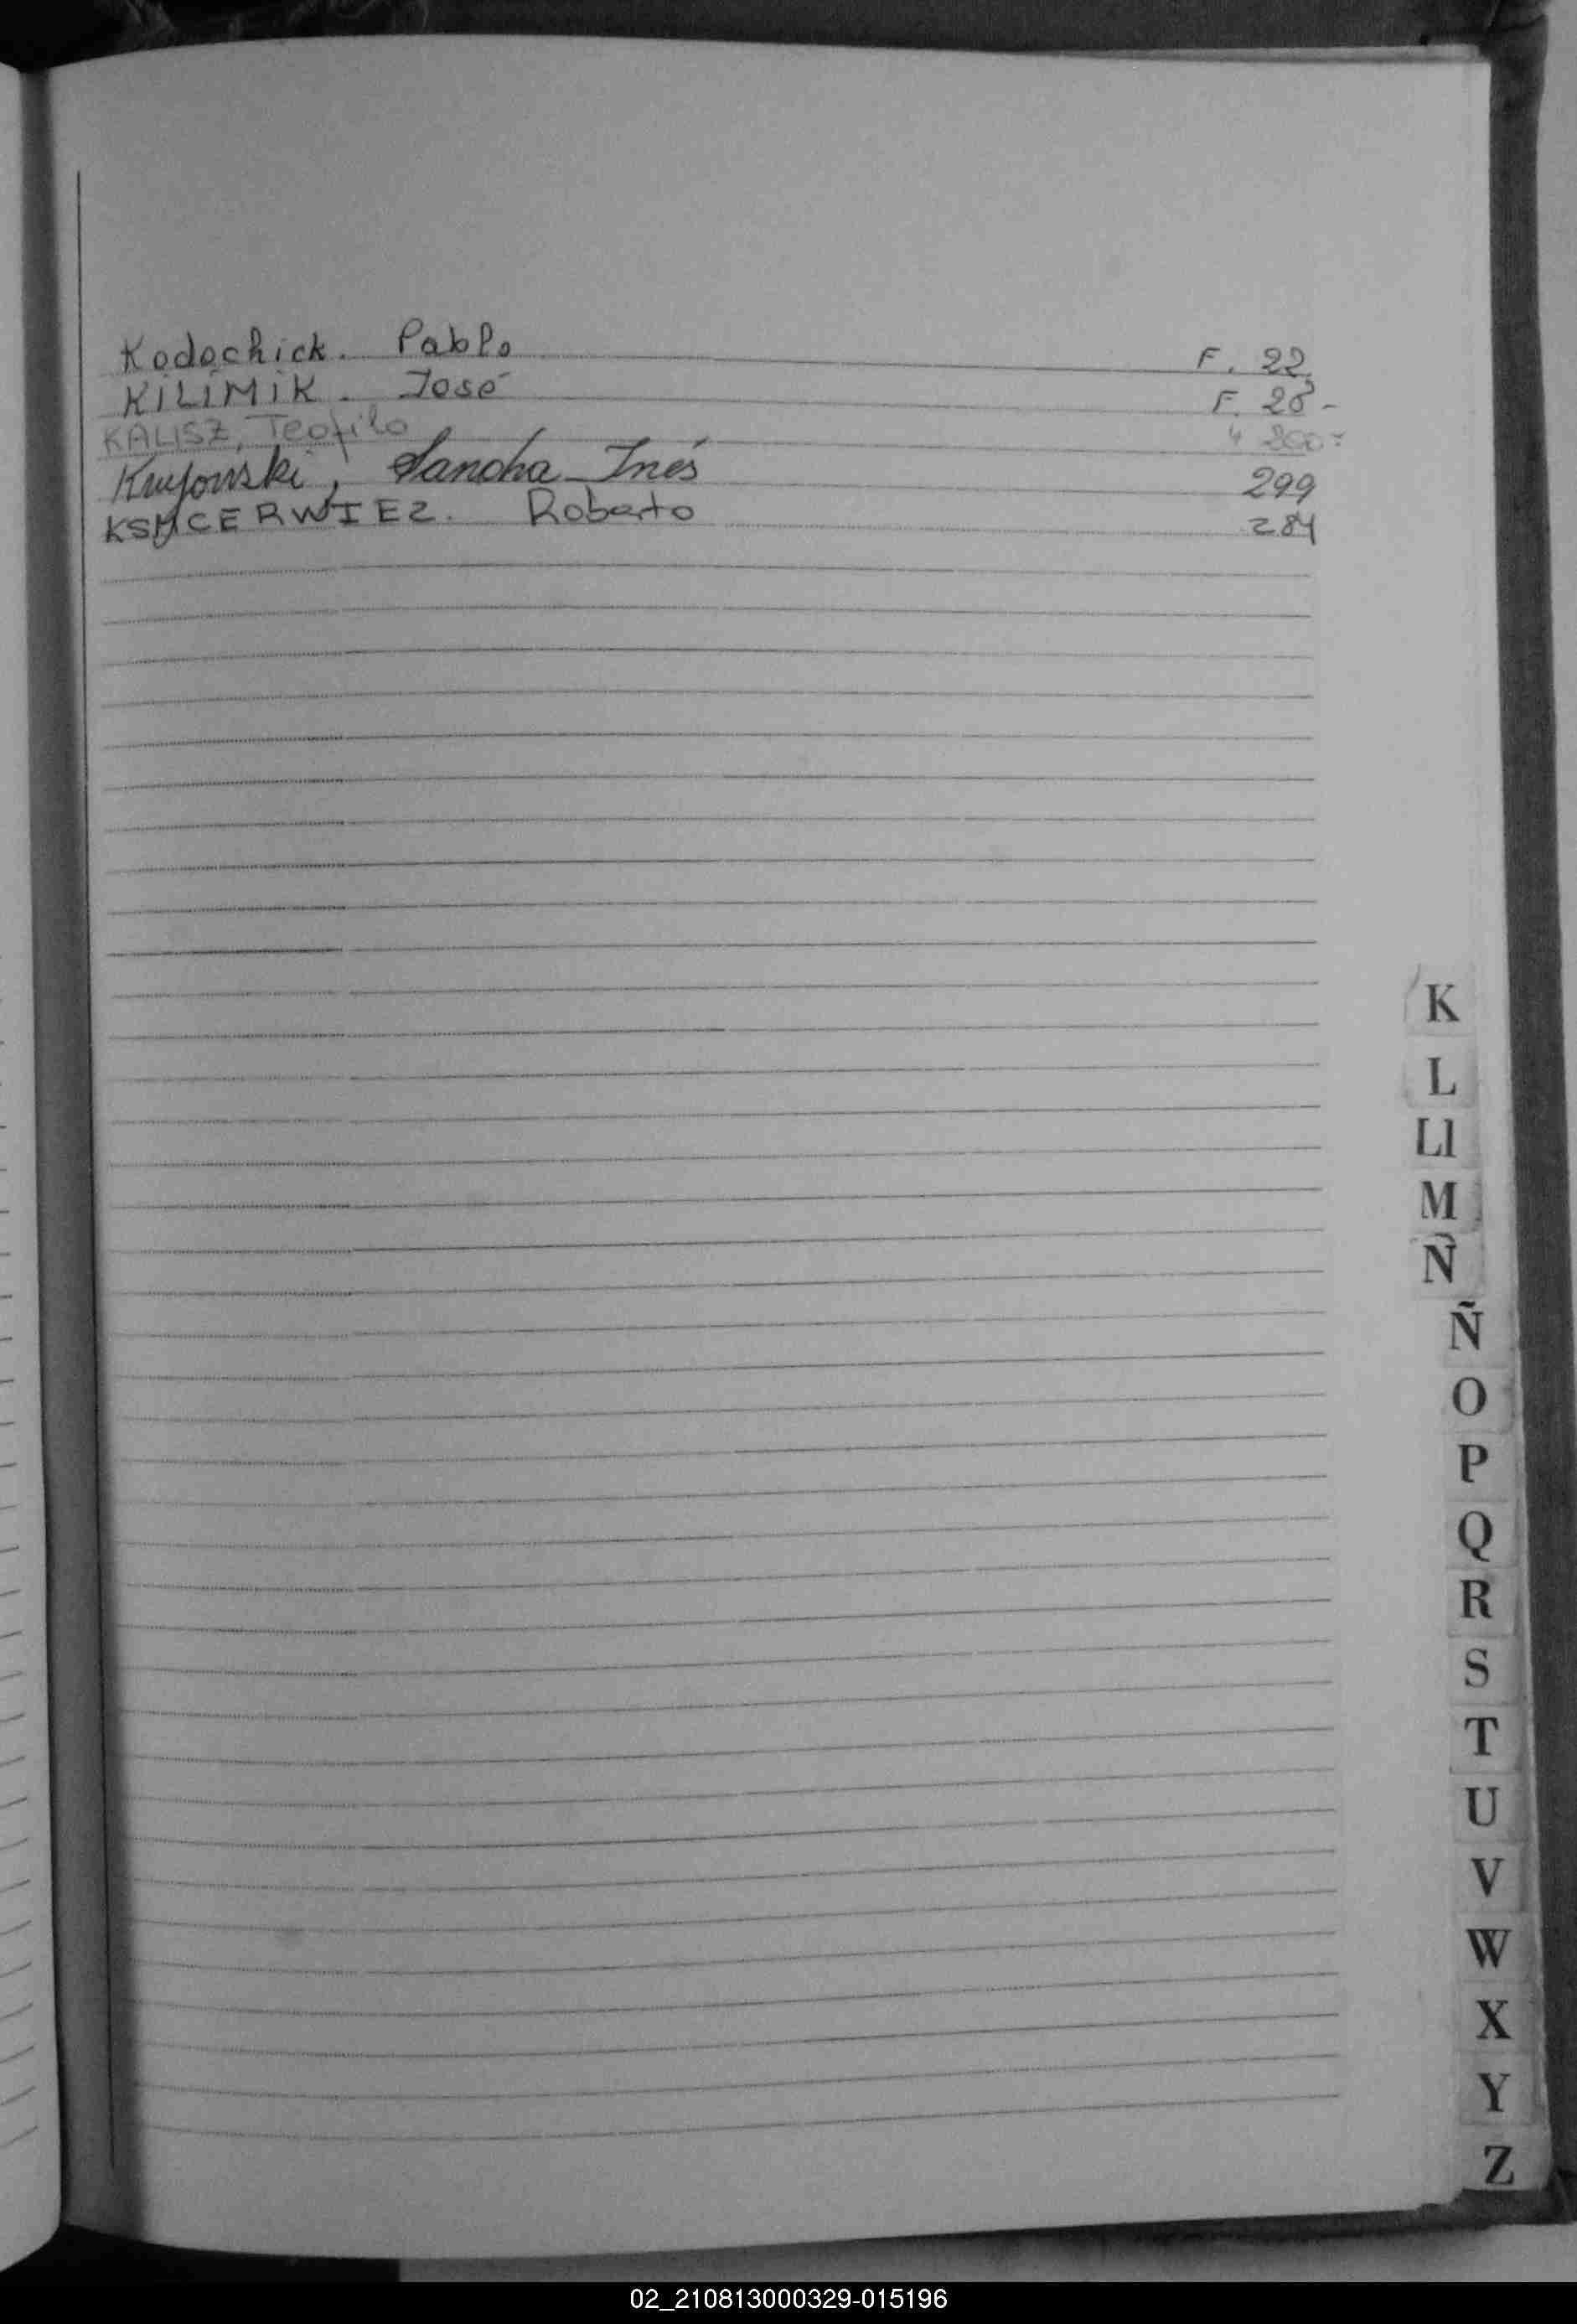 Kodochick. Pablo F. 22
KiLiMiK. José F. 28-
KALISZ, Teofilo
Sandra Inés 299
Roberto 284
K
L
Ll
M
N
Ñ
O
P
Q
R
S
T
U
V
W
X
Y
Z
02_210813000329-015196